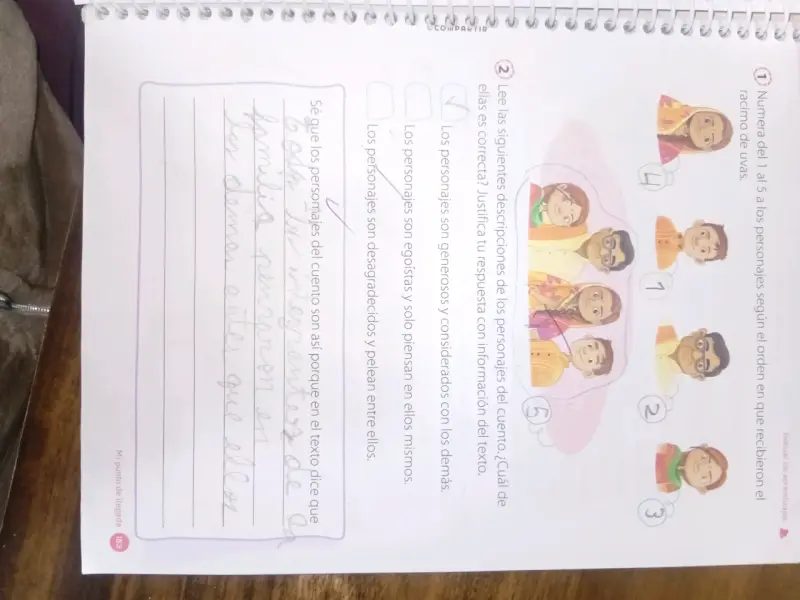 Evaluar los aprendizajes
1 Numera del 1 al 5 a los personajes según el orden en que recibieron el
racimo de uvas.
4 1 2 3
5
2 Lee las siguientes descripciones de los personajes del cuento. ¿Cuál de
ellas es correcta? Justifica tu respuesta con información del texto.
✓ Los personajes son generosos y considerados con los demás.
Los personajes son egoístas y solo piensan en ellos mismos.
Los personajes son desagradecidos y pelean entre ellos.
Sé que los personajes del cuento son así porque en el texto dice que
todos los integrantes de la
familia pensaron en
los demas antes que ellos
Mi punto de llegada 183
COMPARTIR